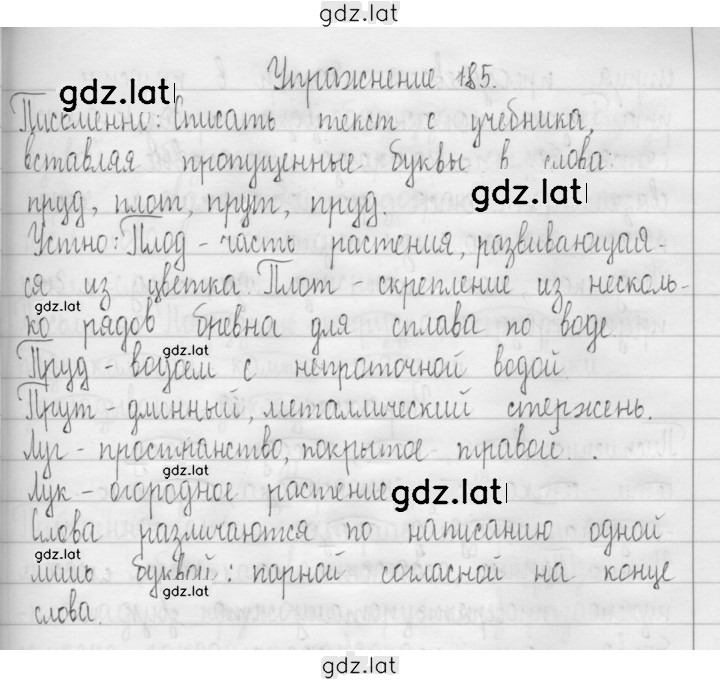 gdz.lat
Упражнение 185.
gdz.lat
Письменно: Списать текст с учебника,
вставляя пропущенные буквы в слова:
gdz.lat
пруд, плот, прут, пруд.
Устно: Плод - часть растения, развивающая-
ся из цветка. Плот - скрепление из несколь-
gdz.lat
ко рядов бревна для сплава по воде.
gdz.lat
Пруд - водоем с непроточной водой.
Прут - длинный, металлический стержень.
Луг - пространство, покрытое травой.
gdz.lat
Лук - огородное растение
gdz.lat
Слова различаются по написанию одной
gdz.lat
лишь буквой: парной согласной на конце
gdz.lat
слова.
gdz.lat